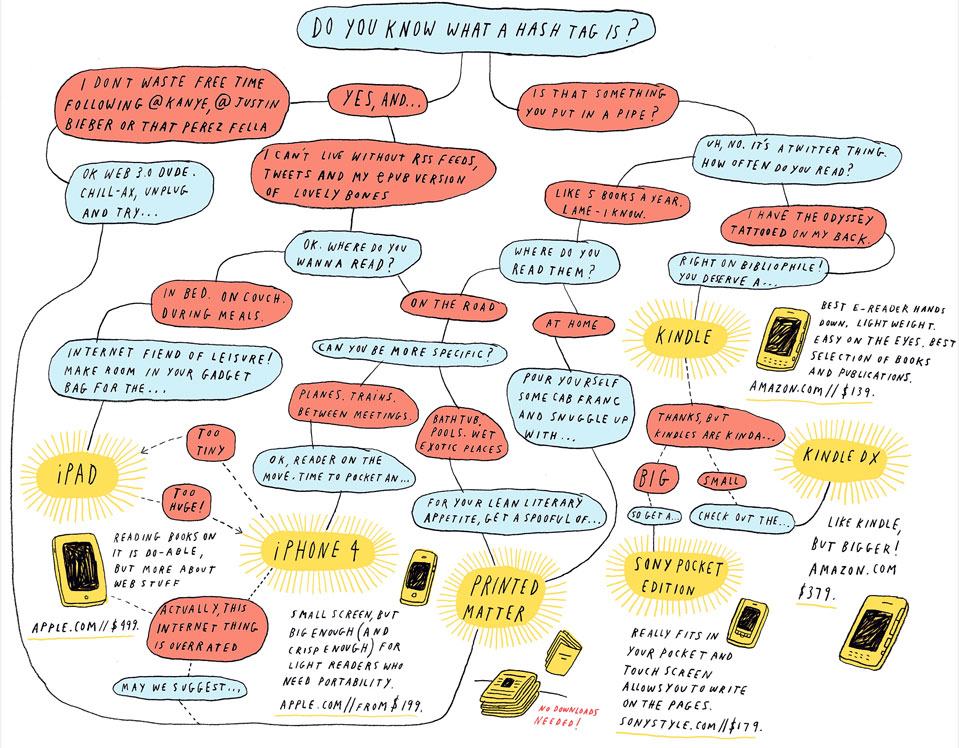 DO YOU KNOW WHAT A HASH TAG IS?
I DONT WASTE FREE TIME
FOLLOWING @KANYE, @JUSTIN
BIEBER OR THAT PEREZ FELLA
YES, AND...
IS THAT SOMETHING
YOU PUT IN A PIPE?
I CAN'T LIVE WITHOUT RSS FEEDS,
TWEETS AND MY ePUB VERSION
OF LOVELY BONES
UH, NO. IT'S A TWITTER THING.
HOW OFTEN DO YOU READ?
OK WEB 3.0 DUDE.
CHILL-AX, UNPLUG
AND TRY...
LIKE 5 BOOKS A YEAR.
LAME - I KNOW.
I HAVE THE ODYSSEY
TATTOOED ON MY BACK.
OK. WHERE DO YOU
WANNA READ?
WHERE DO YOU
READ THEM?
RIGHT ON BIBLIOPHILE!
YOU DESERVE A...
IN BED. ON COUCH.
DURING MEALS.
ON THE ROAD
AT HOME
KINDLE
BEST E-READER HANDS
DOWN. LIGHT WEIGHT.
EASY ON THE EYES. BEST
SELECTION OF BOOKS
AND PUBLICATIONS.
AMAZON.COM // $139.
INTERNET FIEND OF LEISURE!
MAKE ROOM IN YOUR GADGET
BAG FOR THE...
CAN YOU BE MORE SPECIFIC?
PLANES. TRAINS.
BETWEEN MEETINGS.
BATHTUB,
POOLS. WET
EXOTIC PLACES
POUR YOURSELF
SOME CAB FRANC
AND SNUGGLE UP
WITH...
THANKS, BUT
KINDLES ARE KINDA...
TOO
TINY
OK, READER ON THE
MOVE. TIME TO POCKET AN...
iPAD
BIG
SMALL
KINDLE DX
TOO
HUGE!
FOR YOUR LEAN LITERARY
APPETITE, GET A SPOOFUL OF...
SO GET A...
CHECK OUT THE...
READING BOOKS ON
IT IS DO-ABLE,
BUT MORE ABOUT
WEB STUFF
APPLE.COM // $499.
iPHONE 4
PRINTED
MATTER
SONY POCKET
EDITION
LIKE KINDLE,
BUT BIGGER!
AMAZON.COM
$379.
ACTUALLY, THIS
INTERNET THING
IS OVERRATED
MAY WE SUGGEST...
SMALL SCREEN, BUT
BIG ENOUGH (AND
CRISP ENOUGH) FOR
LIGHT READERS WHO
NEED PORTABILITY.
APPLE.COM // FROM $199.
NO DOWNLOADS
NEEDED!
REALLY FITS IN
YOUR POCKET AND
TOUCH SCREEN
ALLOWS YOU TO WRITE
ON THE PAGES.
SONYSTYLE.COM // $179.